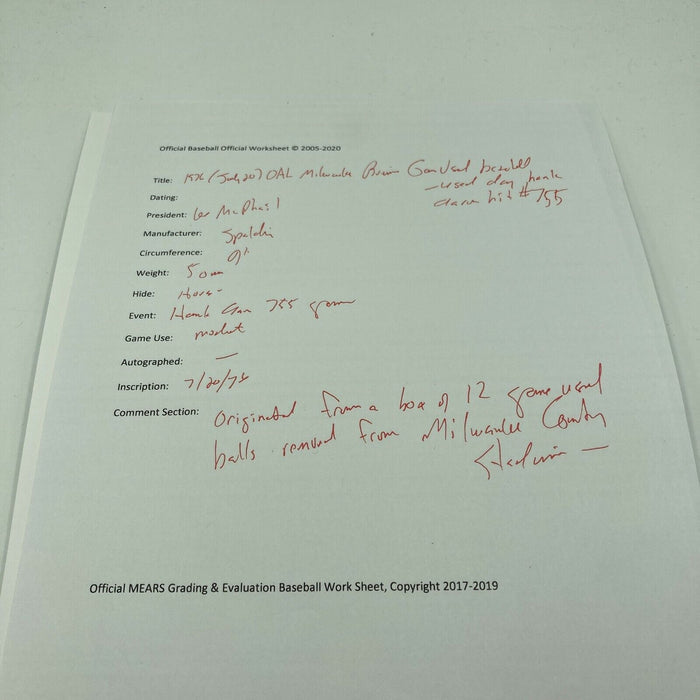 Official Baseball Official Worksheet © 2005-2020
Title: 1976 (July 20) OAL Milwaukee Brewers Game Used baseball
- used day hank
aaron hit # 755
Dating:
President: Lee McPhail
Manufacturer: Spaldin
Circumference: 9"
Weight: 5 oun
Hide: Horse
Event: Hank Aaron 755 game
Game Use: moderate
Autographed: —
Inscription: 7/20/76
Comment Section: Originated from a box of 12 game used
balls removed from Milwaukee County
Stadium —
Official MEARS Grading & Evaluation Baseball Work Sheet, Copyright 2017-2019